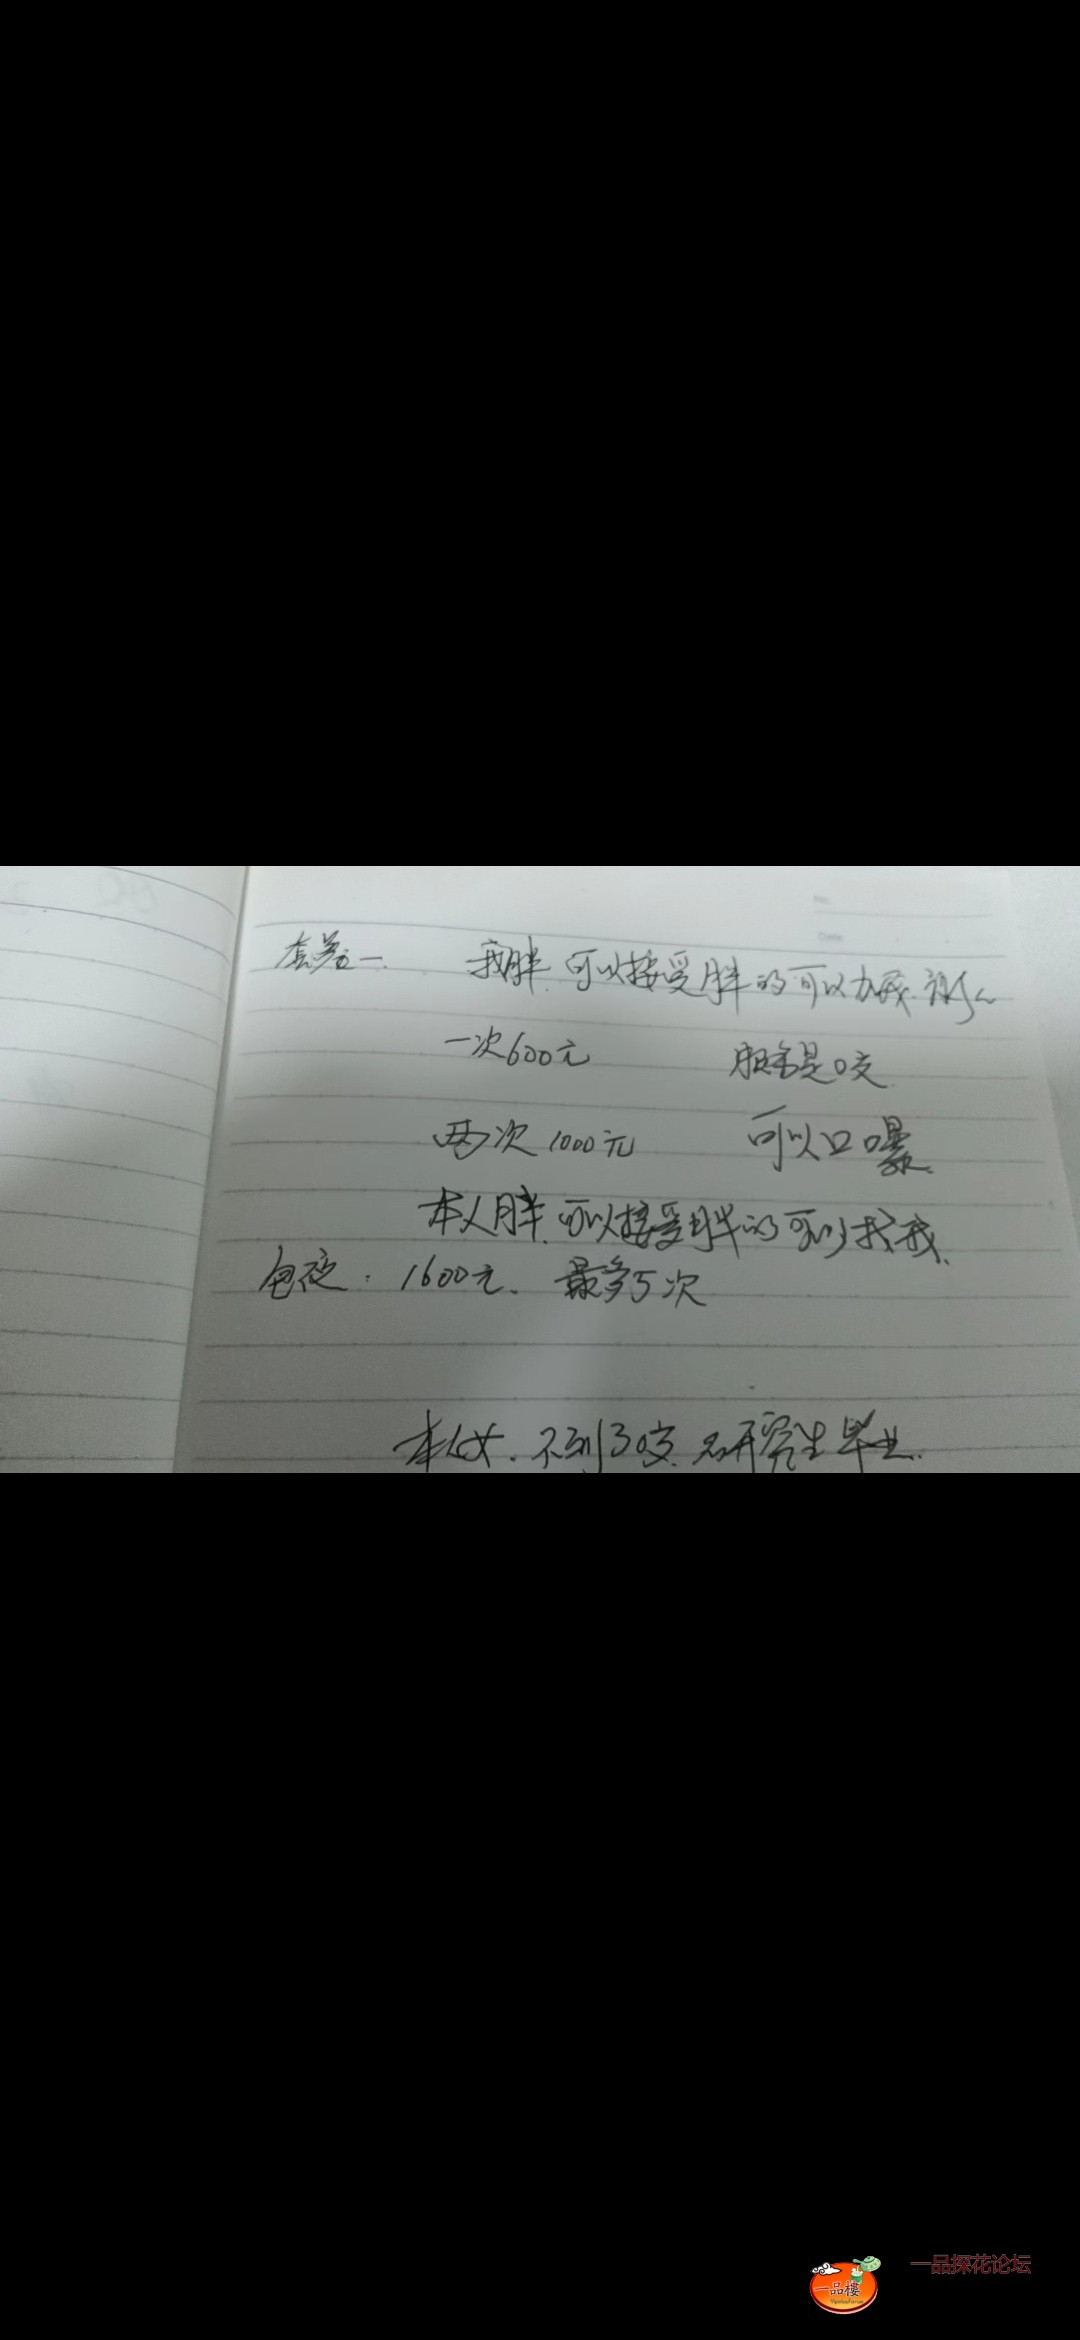 套餐一. 我胖.可以接受胖的可以加我.谢谢
一次600元
服务是口交
两次 1000元
可以口爆.
本人胖.可以接受胖的可以找我.
包夜: 1600元. 最多5次
本人女.不到30岁.研究生毕业.
一品探花论坛
一品楼